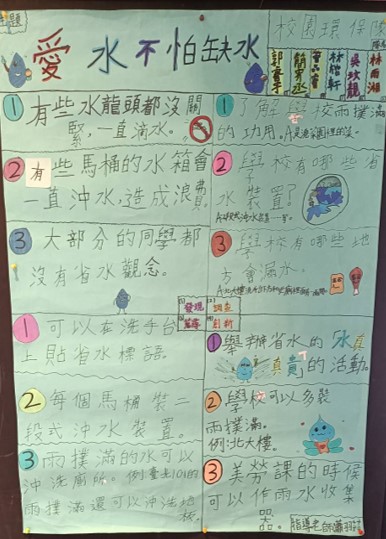 主題
校園環保隊
愛水不怕缺水
林雨湘
1 有些水龍頭都沒關
緊,一直滴水。
2 有些馬桶的水箱會
一直沖水,造成浪費
3 大部分的同學都
沒有省水觀念。
1 了解學校雨撲滿
的功用。
2 學校有哪些省
水裝置?
3 學校有哪些地
方會漏水。
發現 調查
創新
1 可以在洗手台
上貼省水標語。
2 每個馬桶裝二
段式沖水裝置。
3 雨撲滿的水可以
沖洗廁所。例臺北101的
雨撲滿還可以沖洗地
板。
1 舉辦省水的「水
真貴」的活動。
2 學校可以多裝
雨撲滿。
例:北大樓。
3 美勞課的時候
可以作雨水收集
器。
指導老師